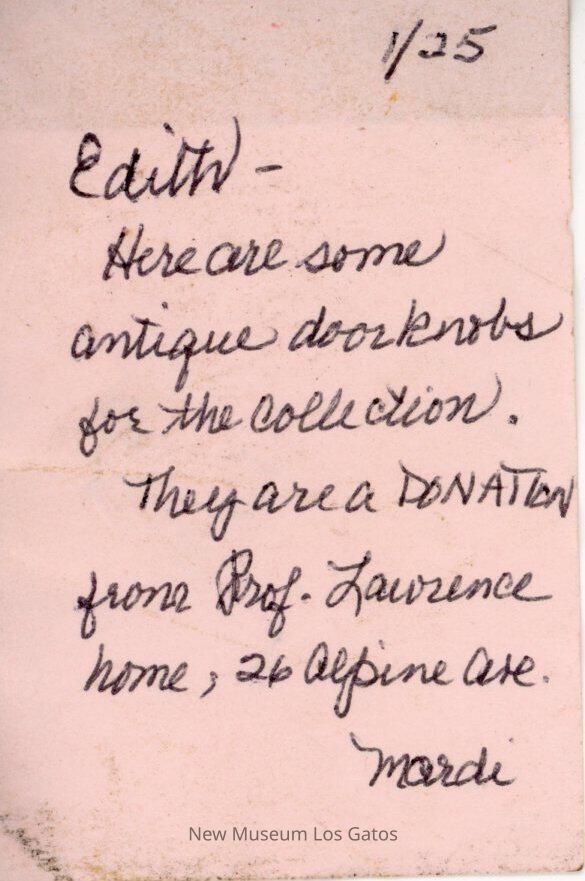 1/25
Edith -
Here are some
antique doorknobs
for the collection.
They are a DONATION
from Prof. Lawrence
home, 26 Alpine Ave.
Mardi
New Museum Los Gatos